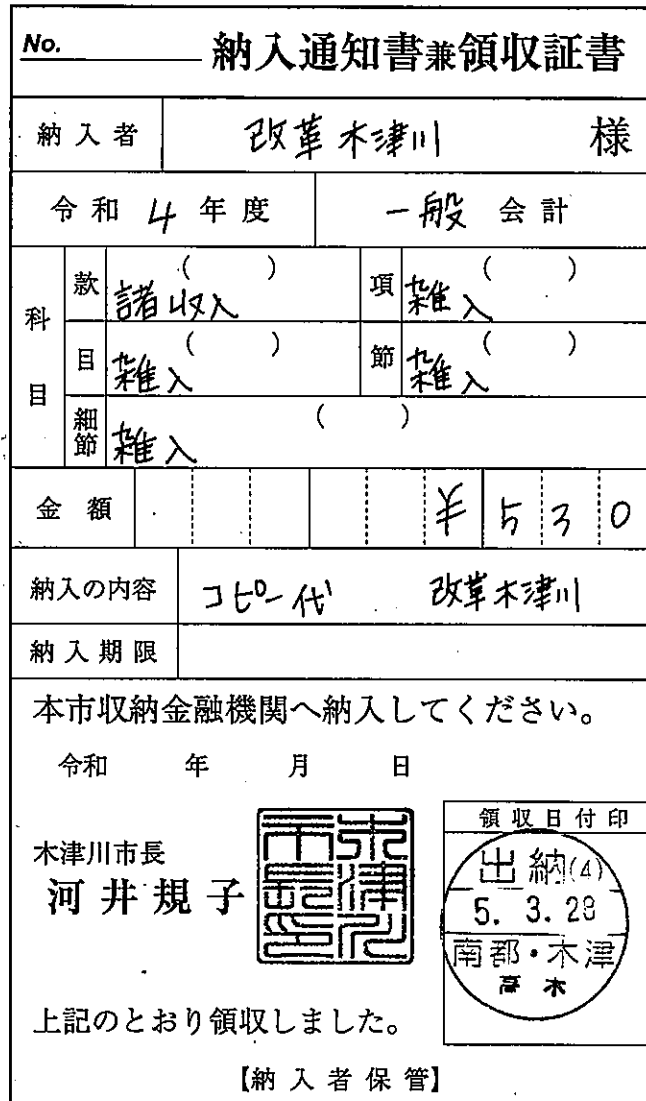 No. 納入通知書兼領収証書
納入者 改革木津川 様
令和 4 年度 一般 会計
科目 款 ( ) 諸収入 項 ( ) 雑入
目 ( ) 雑入 節 ( ) 雑入
細節 ( ) 雑入
金額 ¥530
納入の内容 コピー代 改革木津川
納入期限
本市収納金融機関へ納入してください。
令和 年 月 日
木津川市長
河井規子
木津川市長之印
領収日付印
出納(4)
5. 3. 28
南都・木津
高木
上記のとおり領収しました。
【納入者保管】